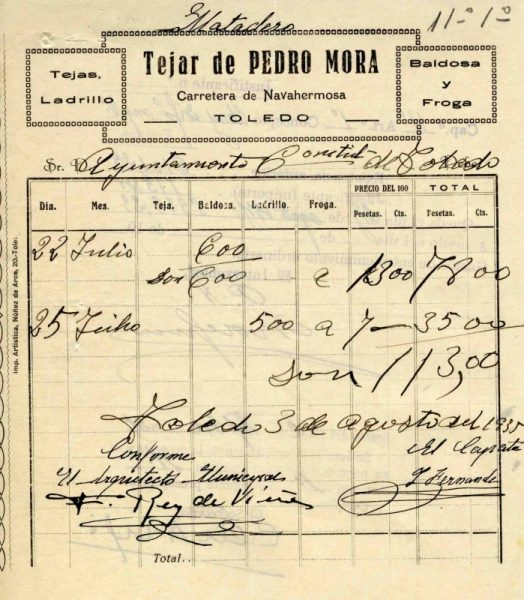 Matadero
11º 1º
Tejas,
Ladrillo
Tejar de PEDRO MORA
Carretera de Navahermosa
TOLEDO
Baldosa
y
Froga
Sr. D. Ayuntamiento Constitl. de Toledo
Día. Mes. Teja. Baldosa. Ladrillo. Froga. PRECIO DEL 100 TOTAL
Pesetas. Cts. Pesetas. Cts.
22 Julio 600
Son 600 a 13 00 78 00
25 Julio 500 a 7 — 35 00
Son 113,00
Toledo 3 de agosto del 1935
Conforme El Capataz
El Arquitecto Municipal
F. Rey de Viñas
J Fernande
Total..
Imp. Artística, Núñez de Arce, 20.-Tole: